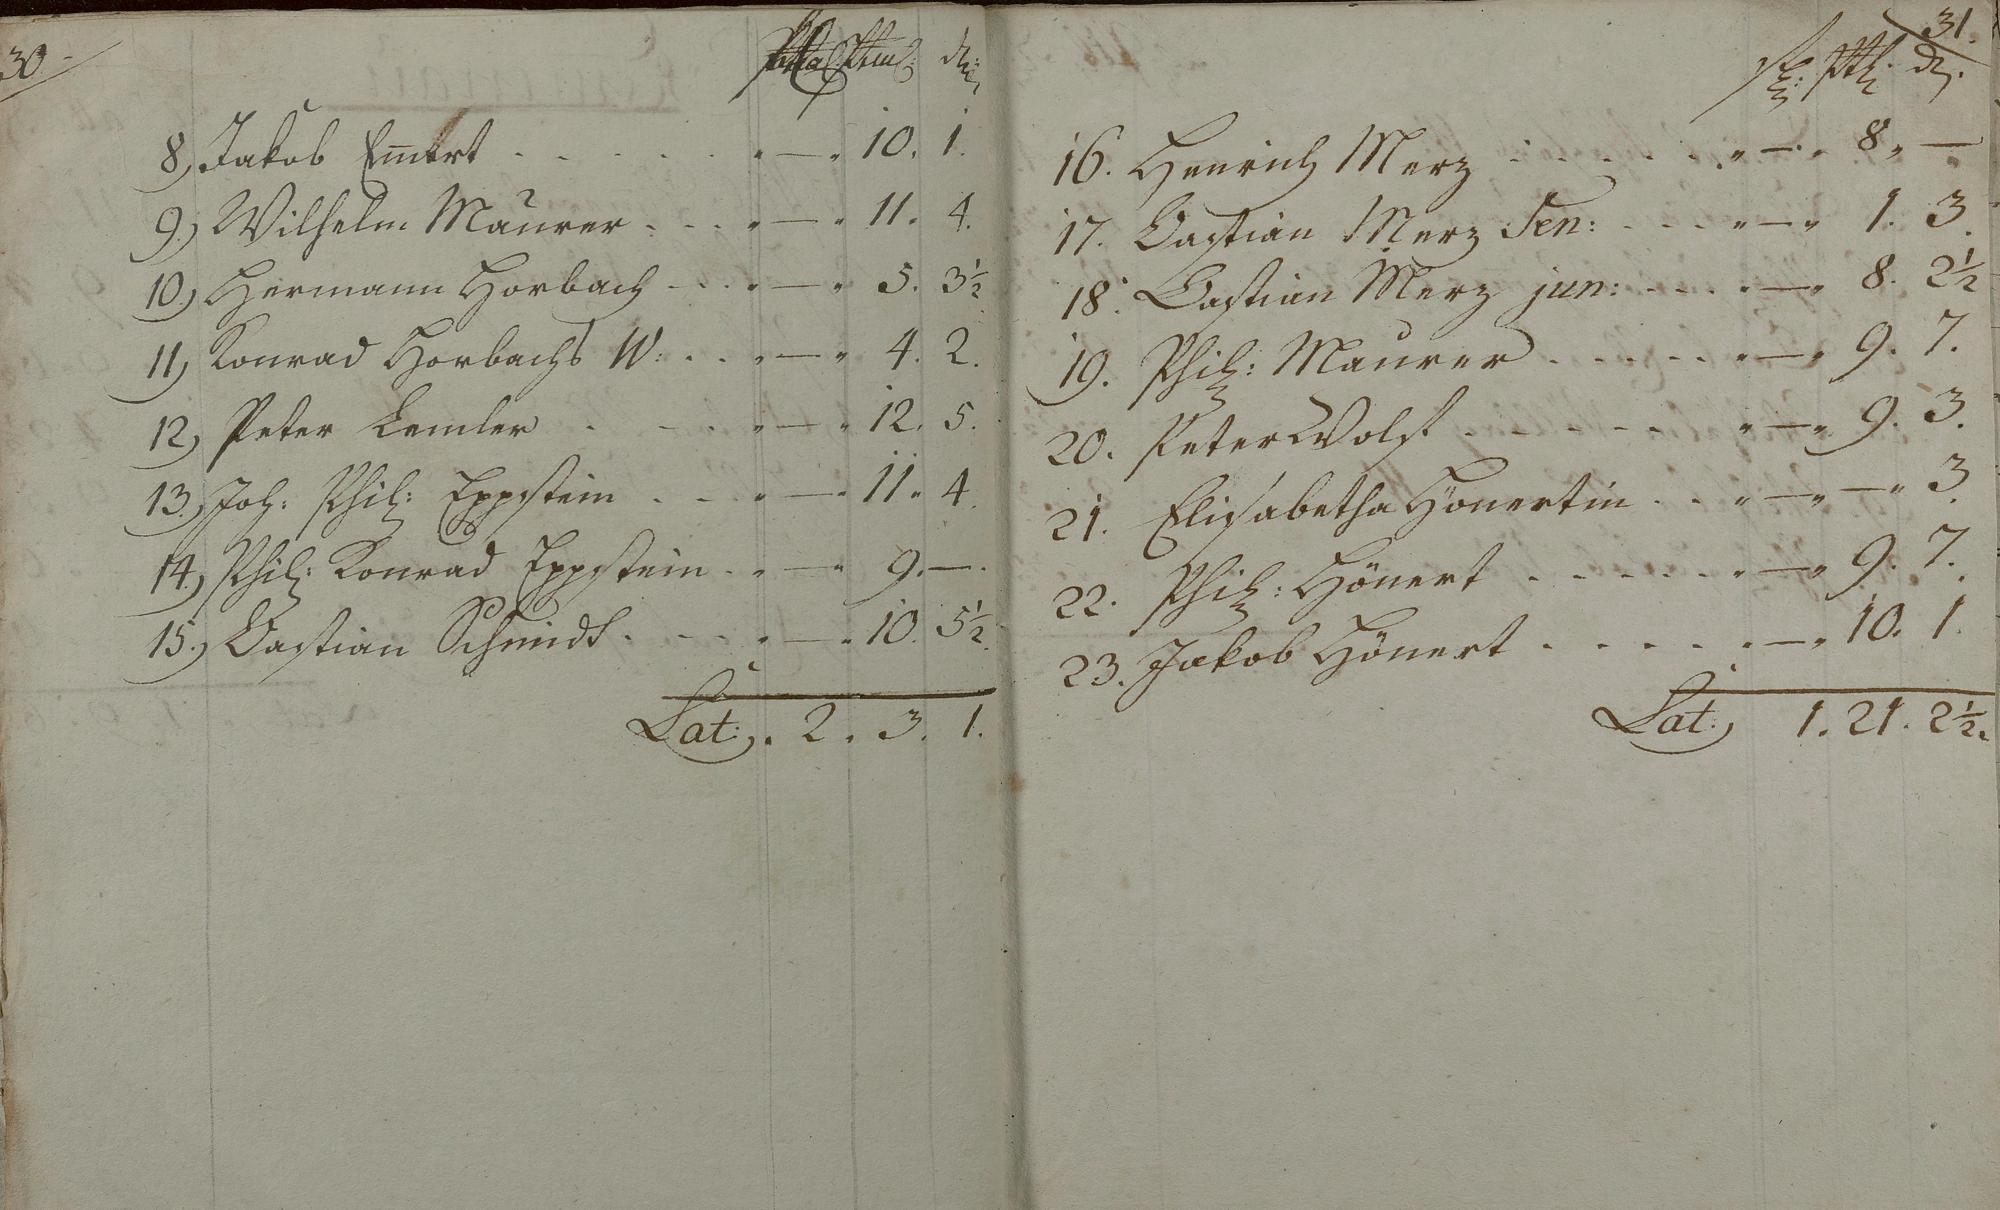 30.
8.) Jakob Em̅ert . . . . . . " — " 10. 1.
9.) Wilhelm Maurer . . . " — " 11. 4.
10.) Hermann Horbach . . . " — " 5. 3½
11.) Konrad Horbachs W: . . " — " 4. 2.
12.) Peter Lemler . . . " — " 12. 5.
13.) Joh: Phil: Eppstein . . " — " 11. 4.
14.) Phil: Konrad Eppstein . " — " 9. —.
15.) Bastian Schmidt . . . " — " 10. 5½
Lat: . 2. 3. 1.
31.
16. Henrich Merz . . . . . " — " 8. —
17. Bastian Merz Sen: . . . " — " 1. 3.
18. Bastian Merz jun: . . . " — " 8. 2½
19. Phil: Maurer . . . . . " — " 9. 7.
20. Peter Wolf . . . . . " — " 9. 3.
21. Elisabetha Hönertin . . " — " — " 3.
22. Phil: Hönert . . . . . " — " 9. 7.
23. Jakob Hönert . . . . . " — " 10. 1.
Lat: 1. 21. 2½.